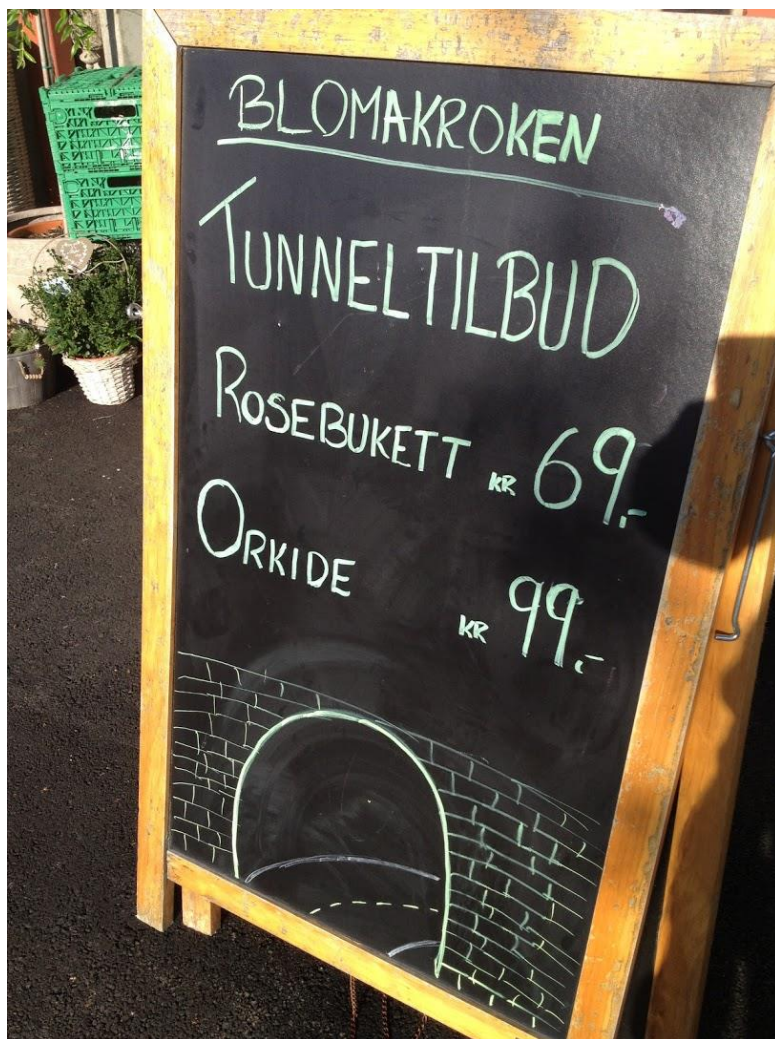 BLOMAKROKEN
TUNNELTILBUD
ROSEBUKETT KR 69,-
ORKIDE KR 99,-